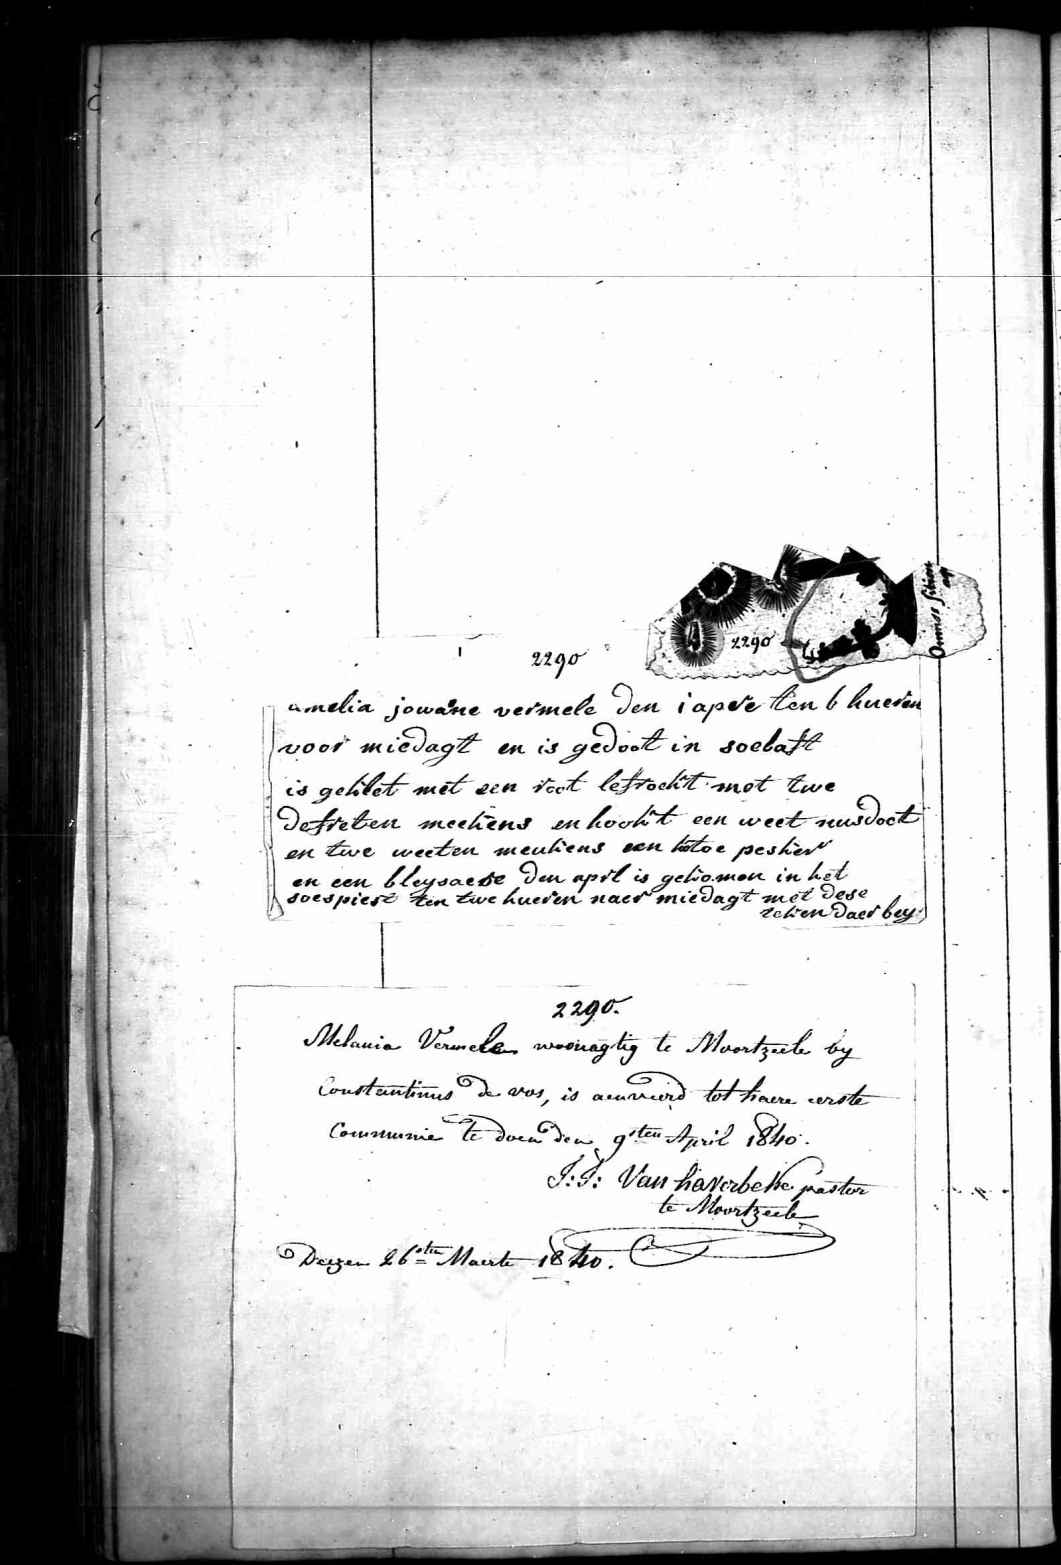 2290
2290
amelia jowane vermele den i apre ten 6 hueren
voor miedagt en is gedoot in soelaft
is geklet met een root lefrockt met twe
defreten meekens en hookt een weet nusdoct
en twe weeten meukens een katoe peskier
en een bleysaere den april is gekomen in het
soespiest ten twe hueren naer miedagt met dese
teken daer bey
2290.
Melania Vermele woonagtig te Moortzeele by
Constantinus de vos, is aenveird tot haere eerste
Communie te doen den 9sten April 1840.
J: J: Van haverbeke pastor
te Moortzeele
Deezen 26sten Maerte 1840.